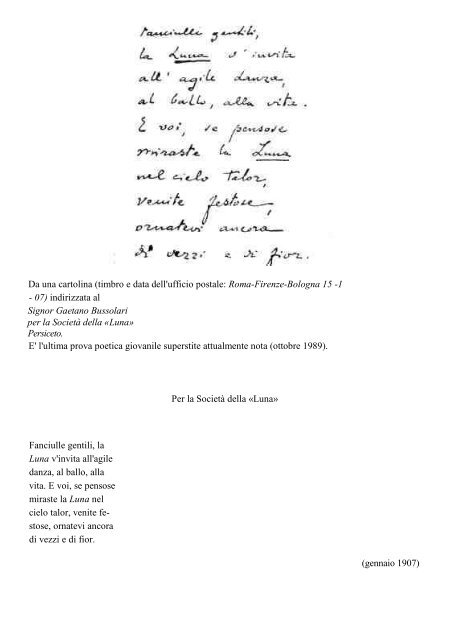 Fanciulle gentili,
la Luna v'invita
all' agile danza,
al ballo, alla vita.
E voi, se pensose
miraste la Luna
nel cielo talor,
venite festose,
ornatevi ancora
di vezzi e di fior.
Da una cartolina (timbro e data dell'ufficio postale: Roma-Firenze-Bologna 15 -1
- 07) indirizzata al
Signor Gaetano Bussolari
per la Società della «Luna»
Persiceto.
E' l'ultima prova poetica giovanile superstite attualmente nota (ottobre 1989).
Per la Società della «Luna»
Fanciulle gentili, la
Luna v'invita all'agile
danza, al ballo, alla
vita. E voi, se pensose
miraste la Luna nel
cielo talor, venite fe-
stose, ornatevi ancora
di vezzi e di fior.
(gennaio 1907)